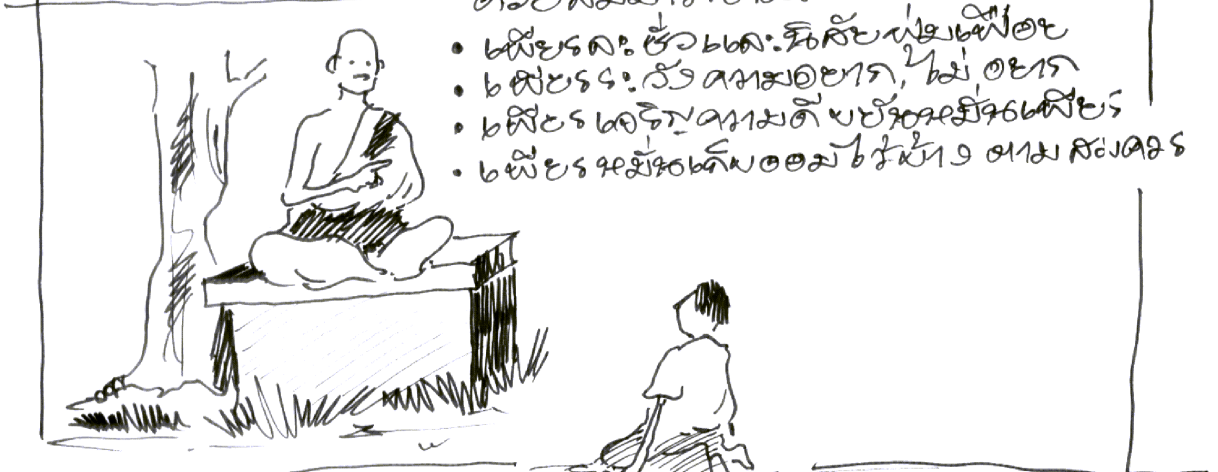 • เพียรละชั่วและนิสัยฟุ่มเฟือย
• เพียรระวังความอยาก, ไม่อยาก
• เพียรเจริญความดี ขยันหมั่นเพียร
• เพียรหมั่นเก็บออมไว้บ้าง ตามสมควร